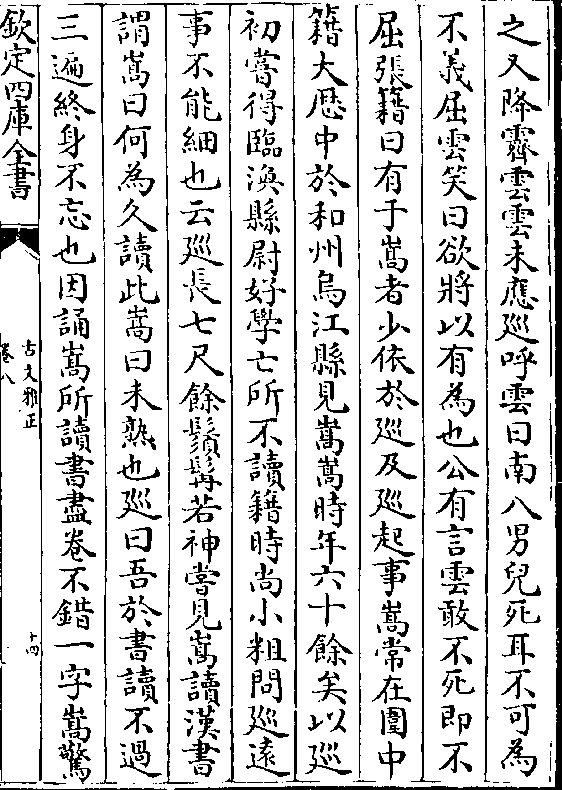 之又降霽雲雲未應巡呼雲曰南八男兒死耳不可為
不義屈雲笑曰欲將以有為也公有言雲敢不死即不
屈張籍曰有于嵩者少依於巡及巡起事嵩常在圍中
籍大厯中於和州烏江縣見嵩嵩時年六十餘矣以巡
初嘗得臨渙縣尉好學亡所不讀籍時尚小粗問巡遠
事不能細也云巡長七尺餘鬚髯若神嘗見嵩讀漢書
謂嵩曰何為久讀此嵩曰未熟也巡曰吾於書讀不過
三遍終身不忘也因誦嵩所讀書盡卷不錯一字嵩驚
欽定四庫全書
古文雅正
卷八
十四